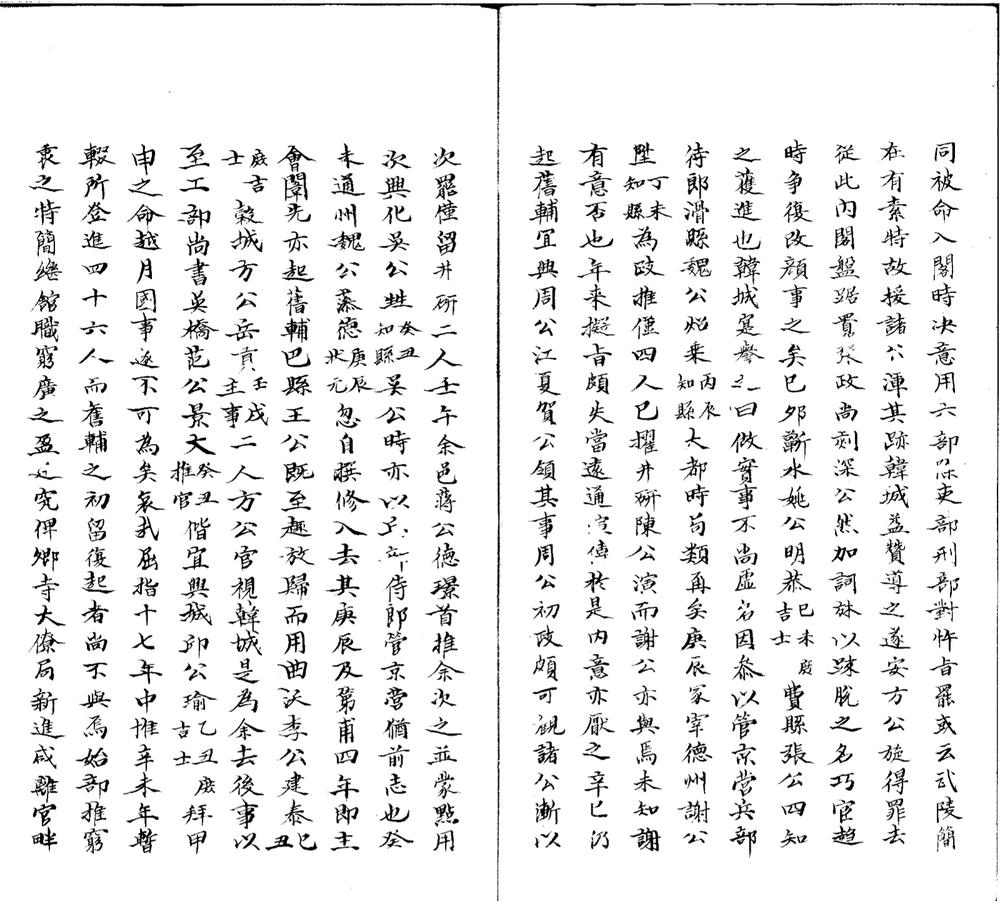 同被命入閣時决意用六部除吏部刑部對忤旨罷或云武陵簡
在有素特故援諸公渾其跡韓城益贊導之遂安方公旋得罪去
從此内閣盤踞置張政尚刻深公然加詞林以踈脫之名巧宦趨
時争復改顔事之矣已夘蘄水姚公明恭己未庶吉士費縣張公四知
之蒦進也韓城寔譽之曰做實事不尚虚名因叅以管京営兵部
待郎滑縣魏公炤乗丙辰知縣大都時苟類再矣庚辰冢宰德州謝公
陞丁未知縣為政推僅四人已擢井研陳公演而謝公亦與焉未知謝
有意否也年来擬旨頗失當遠通宣傳於是内意亦厭之辛巳仍
起舊輔宜興周公江夏賀公領其事周公初政頗可觀諸公漸以
次罷僅留井研二人壬午余邑蔣公德璟首推余次之並蒙㸃用
次興化吳公甡癸丑知縣吴公時亦以侍郎管京営猶前志也癸
未通州魏公藻德庚辰狀元忽自撰修入去其庚辰及第甫四年即主
會闈先亦起舊輔巴縣王公既至趣放歸而用曲沃李公建泰乙丑
庶吉士穀城方公岳貢壬戌主事二人方公官視韓城是為余去後事以
至工部尚書吴橋范公景大癸丑推官偕宜興城邱公瑜乙丑庶吉士拜甲
申之命越月國事遂不可為矣哀哉屈指十七年中推辛未年暫
輟所登進四十六人而舊輔之初留復起者尚不與焉始部推窮
衷之特簡繼館職窮廣之盈廷究俾卿寺大僚局新進咸離官畔